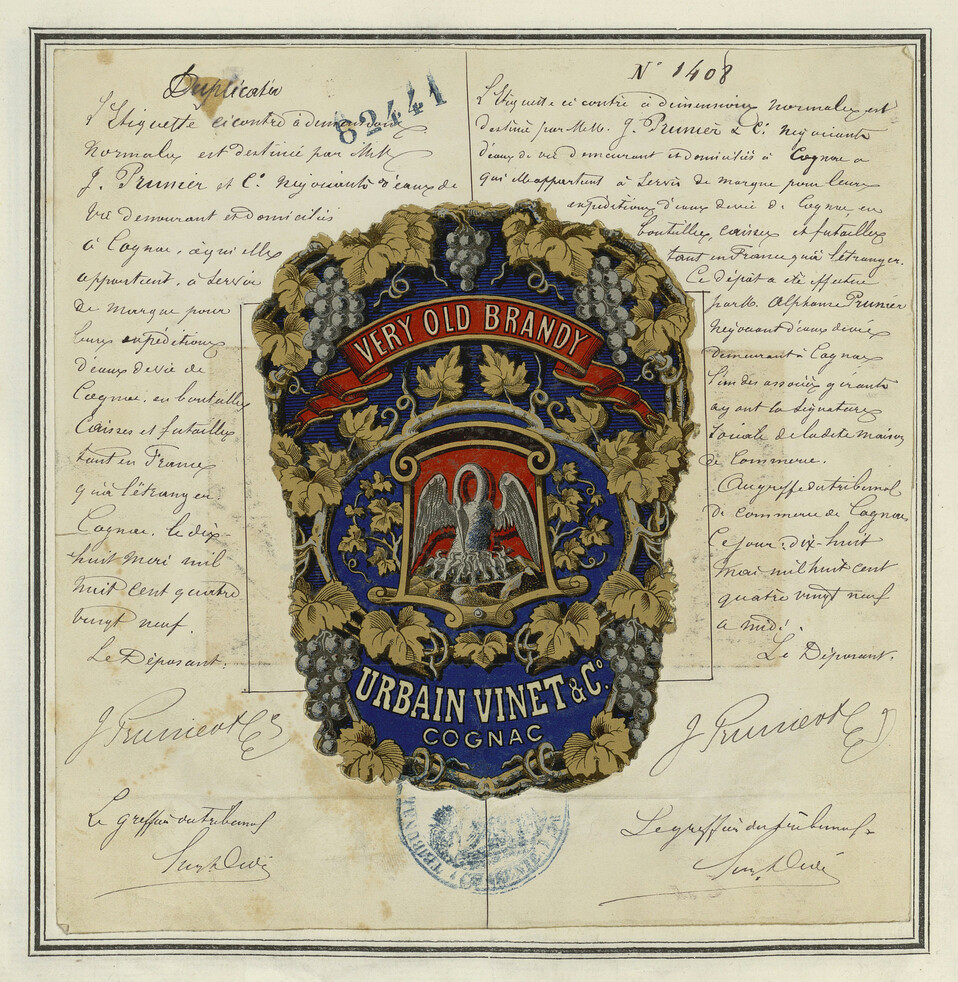 Duplicata
82441
L'Etiquette ci contre à dimensions
normales est destinée par MM
J. Prunier et Cie. Négociants d'eaux de
vie demeurant et domiciliés
à Cognac, à qui elle
appartient, à servir
de marque pour
leurs expéditions
d'eaux de vie de
Cognac, en bouteilles
Caisses et futailles
tant en France
qu'à l'étranger
Cognac, le dix-
huit Mai mil
huit cent quatre
vingt neuf.
Le Déposant:
J Prunier & Co
Le greffier du tribunal
N° 1408
L'Etiquette ci contre à dimensions normales est
destinée par M.M. J. Prunier & Cie. Négociants
d'eaux de vie demeurant et domiciliés à Cognac a
qui elle appartient à servir de marque pour leurs
expéditions d'eaux de vie de Cognac, en
bouteilles, caisses et futailles
tant en France qu'à l'étranger.
Ce dépôt a été effectué
par M. Alphonse Prunier
Négociant d'eaux de vie
demeurant à Cognac
l'un des associés gérants
ayant la signature
sociale de la dite maison
de Commerce.
Au greffe du tribunal
de commerce de Cognac
Ce jour, dix-huit
Mai mil huit cent
quatre vingt neuf
à midi.
Le Déposant.
J Prunier & Co
Le greffier du tribunal
VERY OLD BRANDY
URBAIN VINET & Co.
COGNAC